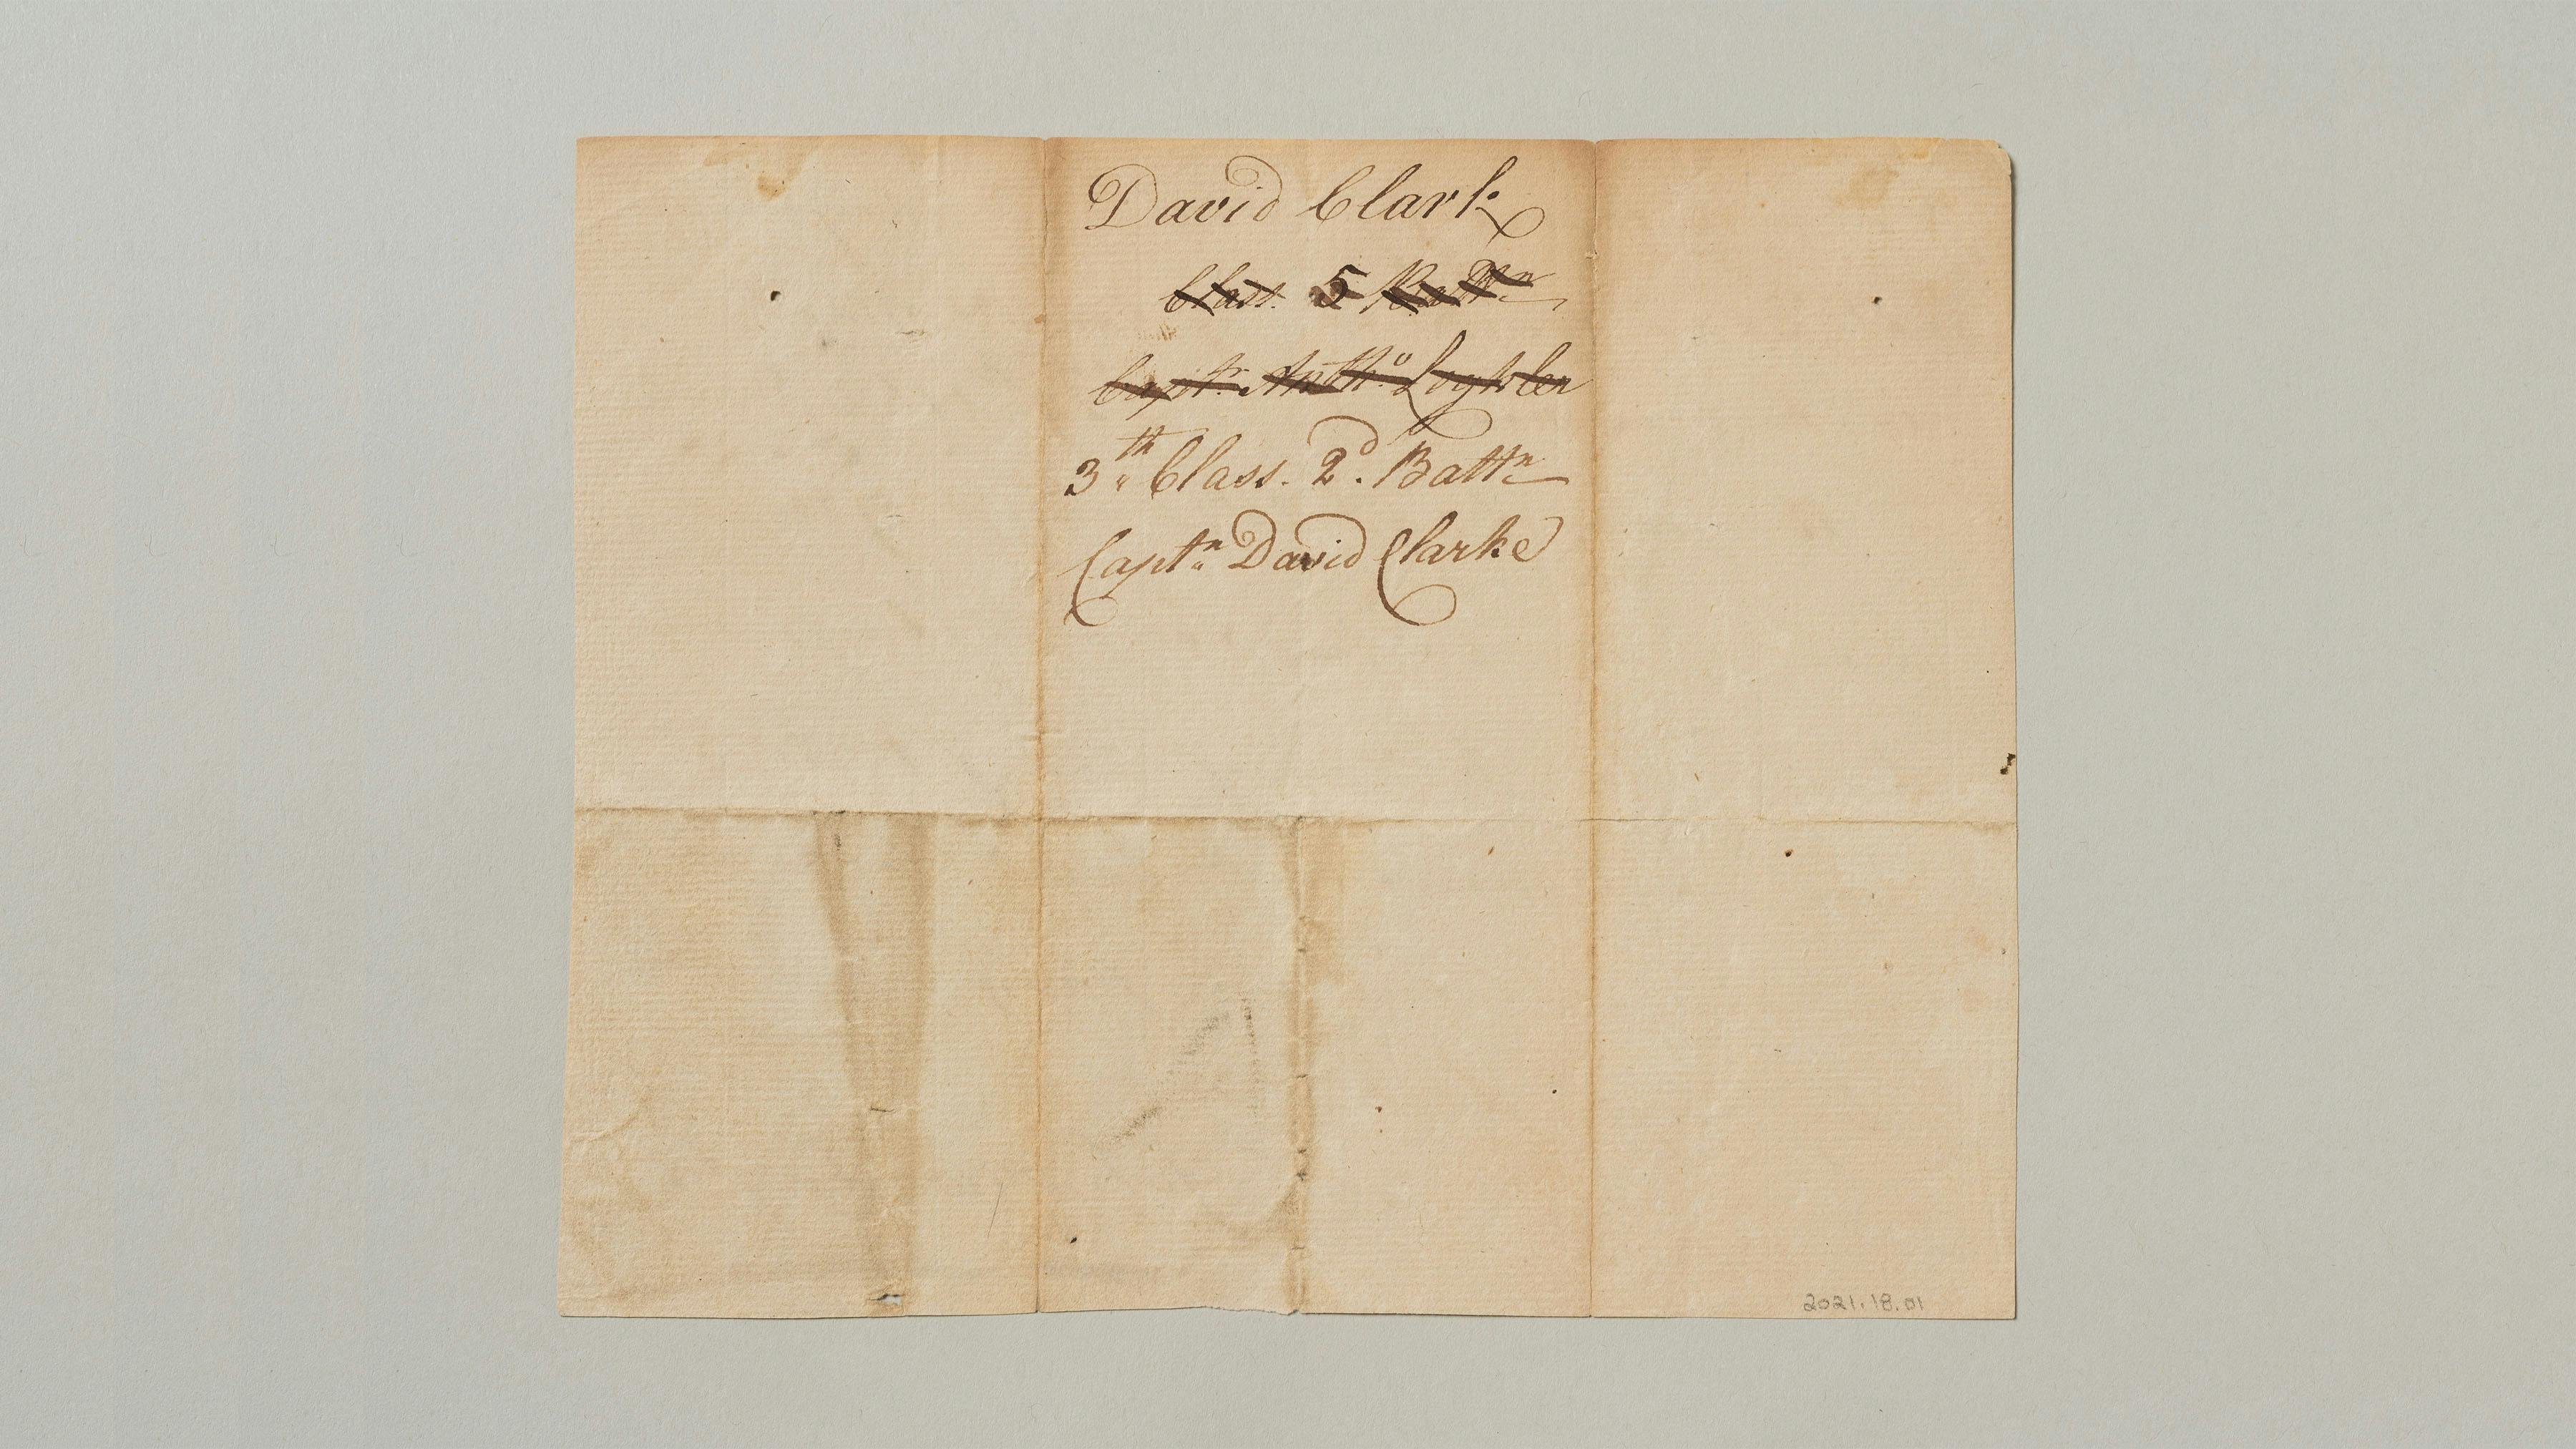 David Clark
Class. 5 Battn
Captn. Antho. Loykslen
3th Class. 2d. Battn
Captn David Clarke
2021.18.01